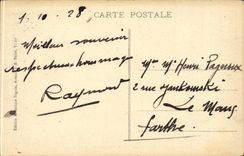 1.10.28
CARTE POSTALE
Meilleur souvenir
respectueux hommages
Raymond
Mr Henri Pageux
2 rue
Le Mans
Sarthe